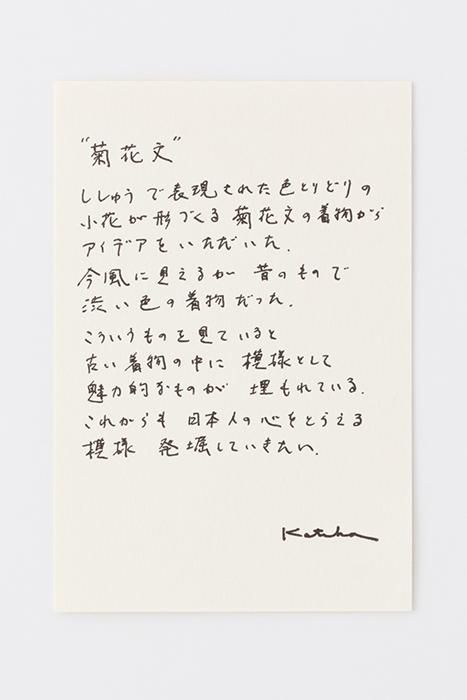 “菊花文”
ししゅうで表現された色とりどりの
小花が形づくる菊花文の着物から
アイデアをいただいた.
今風に見えるが 昔のもので
渋い色の着物だった.
こういうものを見ていると
古い着物の中に 模様として
魅力的なものが 埋もれている.
これからも 日本人の心をとらえる
模様 発掘していきたい.